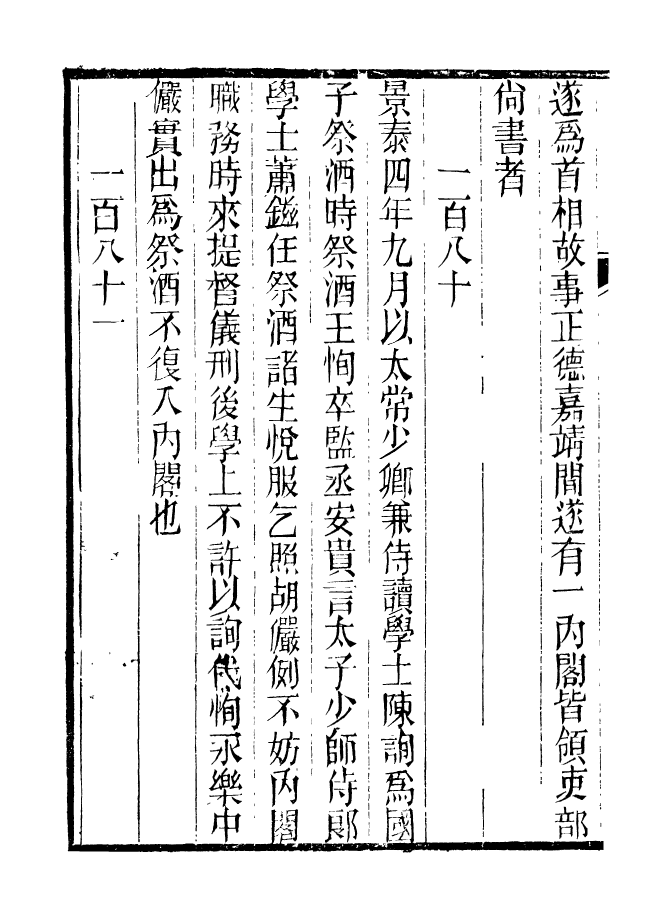 遂爲首相故事正德嘉靖間遂有一內閣皆領吏部
尙書者
一百八十
景泰四年九月以太常少卿兼侍讀學士陳詢爲國
子祭酒時祭酒王恂卒監丞安貴言太子少師侍郞
學士蕭鎡任祭酒諸生悅服乞照胡儼例不妨內閣
職務時來提督儀刑後學上不許以詢代恂永樂中
儼實出爲祭酒不復入內閣也
一百八十一